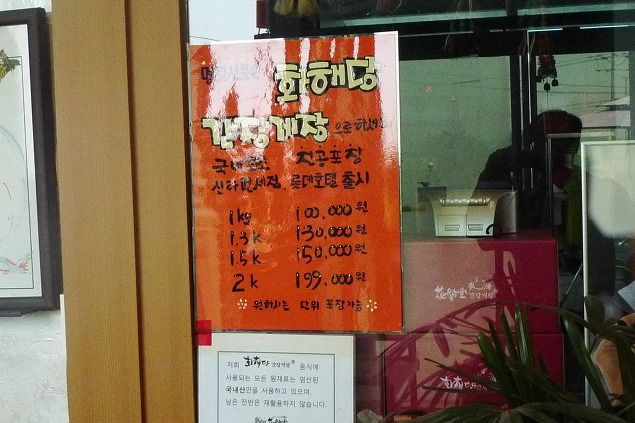 화해당
간장게장 으로하세요
진공포장
신라면세점 롯데호텔 출시
1kg 100,000원
1.3k 130,000원
1.5k 150,000원
2k 199,000원
원하시는 단위 포장가능
저희 화해당 간장게장 음식에
사용되는 모든 원재료는 엄선된
국내산만을 사용하고 있으며,
남은 잔반은 재활용하지 않습니다.